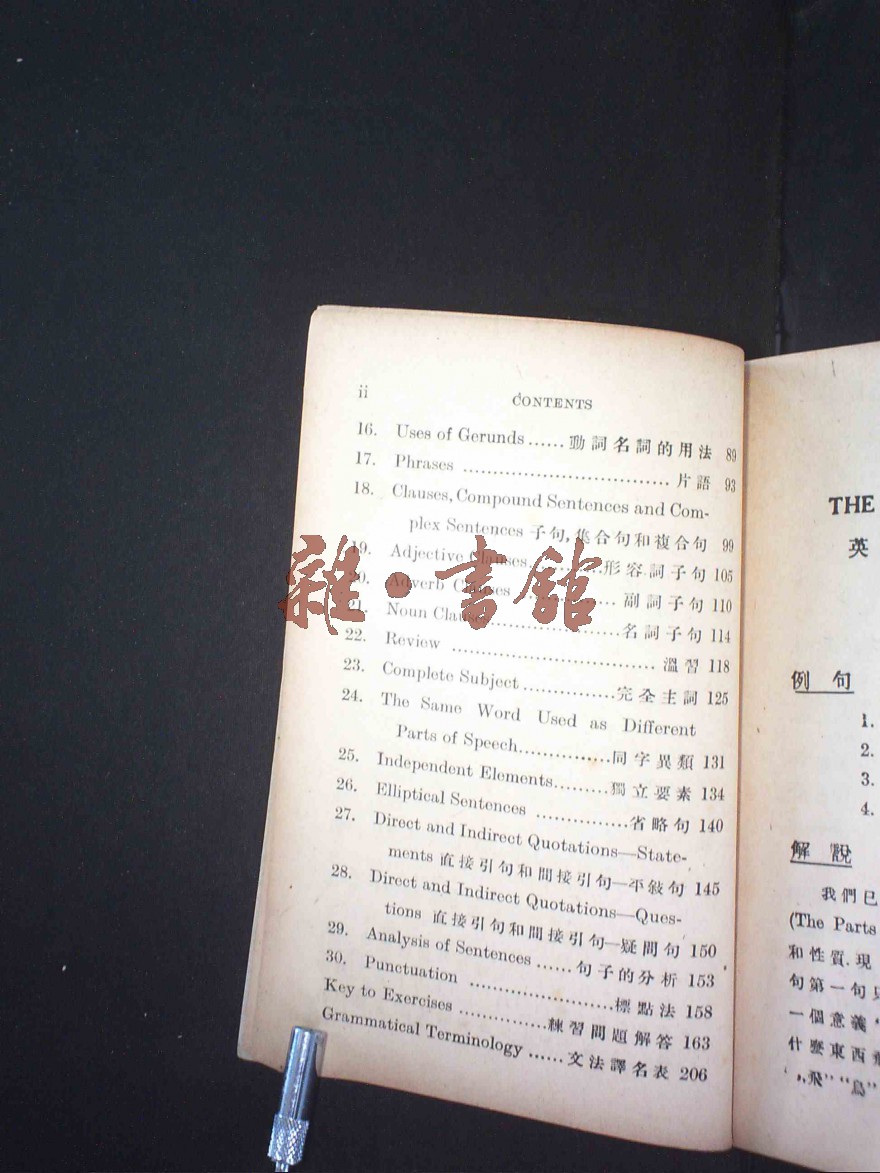 ii CONTENTS
16. Uses of Gerunds......動詞名詞的用法 89
17. Phrases ..............................片語 93
18. Clauses, Compound Sentences and Com-
plex Sentences 子句,集合句和複合句 99
19. Adjective Clauses...........形容詞子句 105
20. Adverb Clauses ............... 副詞子句 110
21. Noun Clauses...................名詞子句 114
22. Review ............................. 溫習 118
23. Complete Subject.............完全主詞 125
24. The Same Word Used as Different
Parts of Speech.............同字異類 131
25. Independent Elements.........獨立要素 134
26. Elliptical Sentences ..............省略句 140
27. Direct and Indirect Quotations—State-
ments 直接引句和間接引句—平敍句 145
28. Direct and Indirect Quotations—Ques-
tions 直接引句和間接引句—疑問句 150
29. Analysis of Sentences ......句子的分析 153
30. Punctuation .....................標點法 158
Key to Exercises .............練習問題解答 163
Grammatical Terminology ......文法譯名表 206
雜·書館
THE
英
例句
1.
2.
3.
4.
解說
我們已
(The Parts
和性質.現
句第一句
一個意義,
什麼東西飛
"飛""鳥"